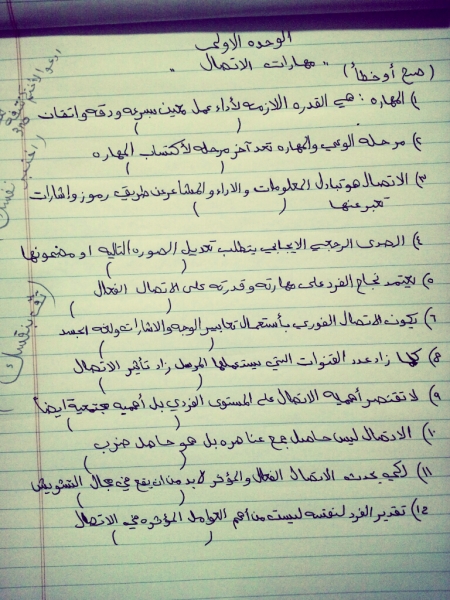 الوحده الاولى
" مهارات الاتصال "
(صح أو خطأ)
١) المهاره : هي القدره اللازمه لأداء عمل معين بسرعه ودقه واتقان
( )
٢) مرحله الوعي والمهاره تعد آخر مرحله لأكتساب المهاره
٣) الاتصال هو تبادل المعلومات والاراء والمشاعر عن طريق رموز واشارات
تعبر عنها ( )
٤) الصدى الرجعي الايجابي يتطلب تعديل الصوره التاليه او مضمونها
( )
٥) يعتمد نجاح الفرد على مهارته وقدرته على الاتصال الفعال
( )
٦) يكون الاتصال الفوري بأستعمال تعابير الوجه والاشارات ولغه الجسد
( )
٨) كلما زاد عدد القنوات التي يستعملها المرسل زاد تأثير الاتصال
( )
٩) لا تقتصر أهميه الاتصال على المستوى الفردي بل أهميه مجتمعية ايضاً
( )
١٠) الاتصال ليس حاصل جمع عناصره بل هو حاصل ضرب
( )
١١) لكي يحدث الاتصال الفعال والمؤثر لابد من ان يقع في مجال التشويش
( )
١٢) تقدير الفرد لنفسه ليست من أهم العوامل المؤثره في الاتصال
( )